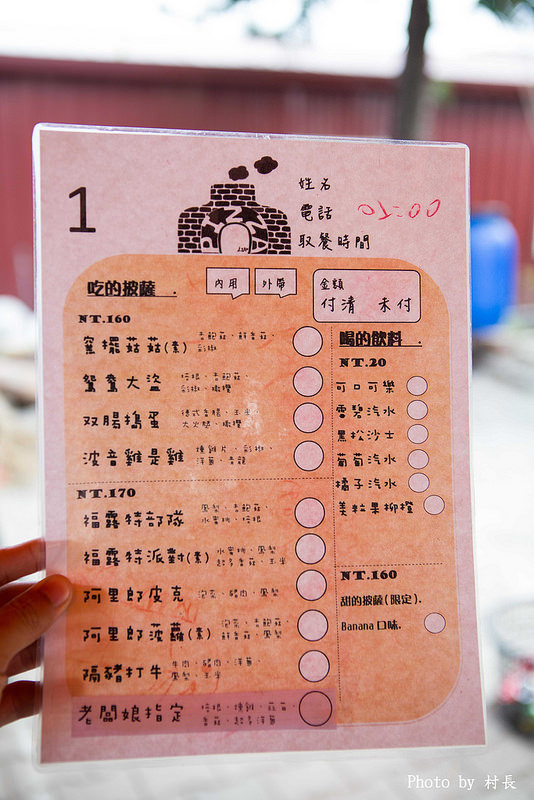 1
姓名
電話
取餐時間
01:00
PIZZA
吃的披薩.
內用
外帶
金額
付清 未付
NT.160
窯擺菇菇(素)
杏鮑菇、鮮香菇、
彩椒
鴛鴦大盜
培根、杏鮑菇、
彩椒、橄欖
双腸搗蛋
德式香腸、玉米、
大火腿、橄欖
波音雞是雞
燻雞片、彩椒、
洋蔥、青龍
NT.170
福露特部隊
鳳梨、杏鮑菇、
水蜜桃、培根
福露特派對(素)
水蜜桃、鳳梨、
超多香菇、玉米
阿里郎皮克
泡菜、豬肉、鳳梨
阿里郎菠蘿(素)
泡菜、杏鮑菇、
鮮香菇、鳳梨
隔豬打牛
牛肉、豬肉、洋蔥、
鳳梨、玉米
老闆娘指定
培根、燻雞、蒜苗、
香菇、超多洋蔥
喝的飲料.
NT.20
可口可樂
雪碧汽水
黑松沙士
葡萄汽水
橘子汽水
美粒果柳橙
NT.160
甜的披薩(限定).
Banana 口味.
Photo by 村長